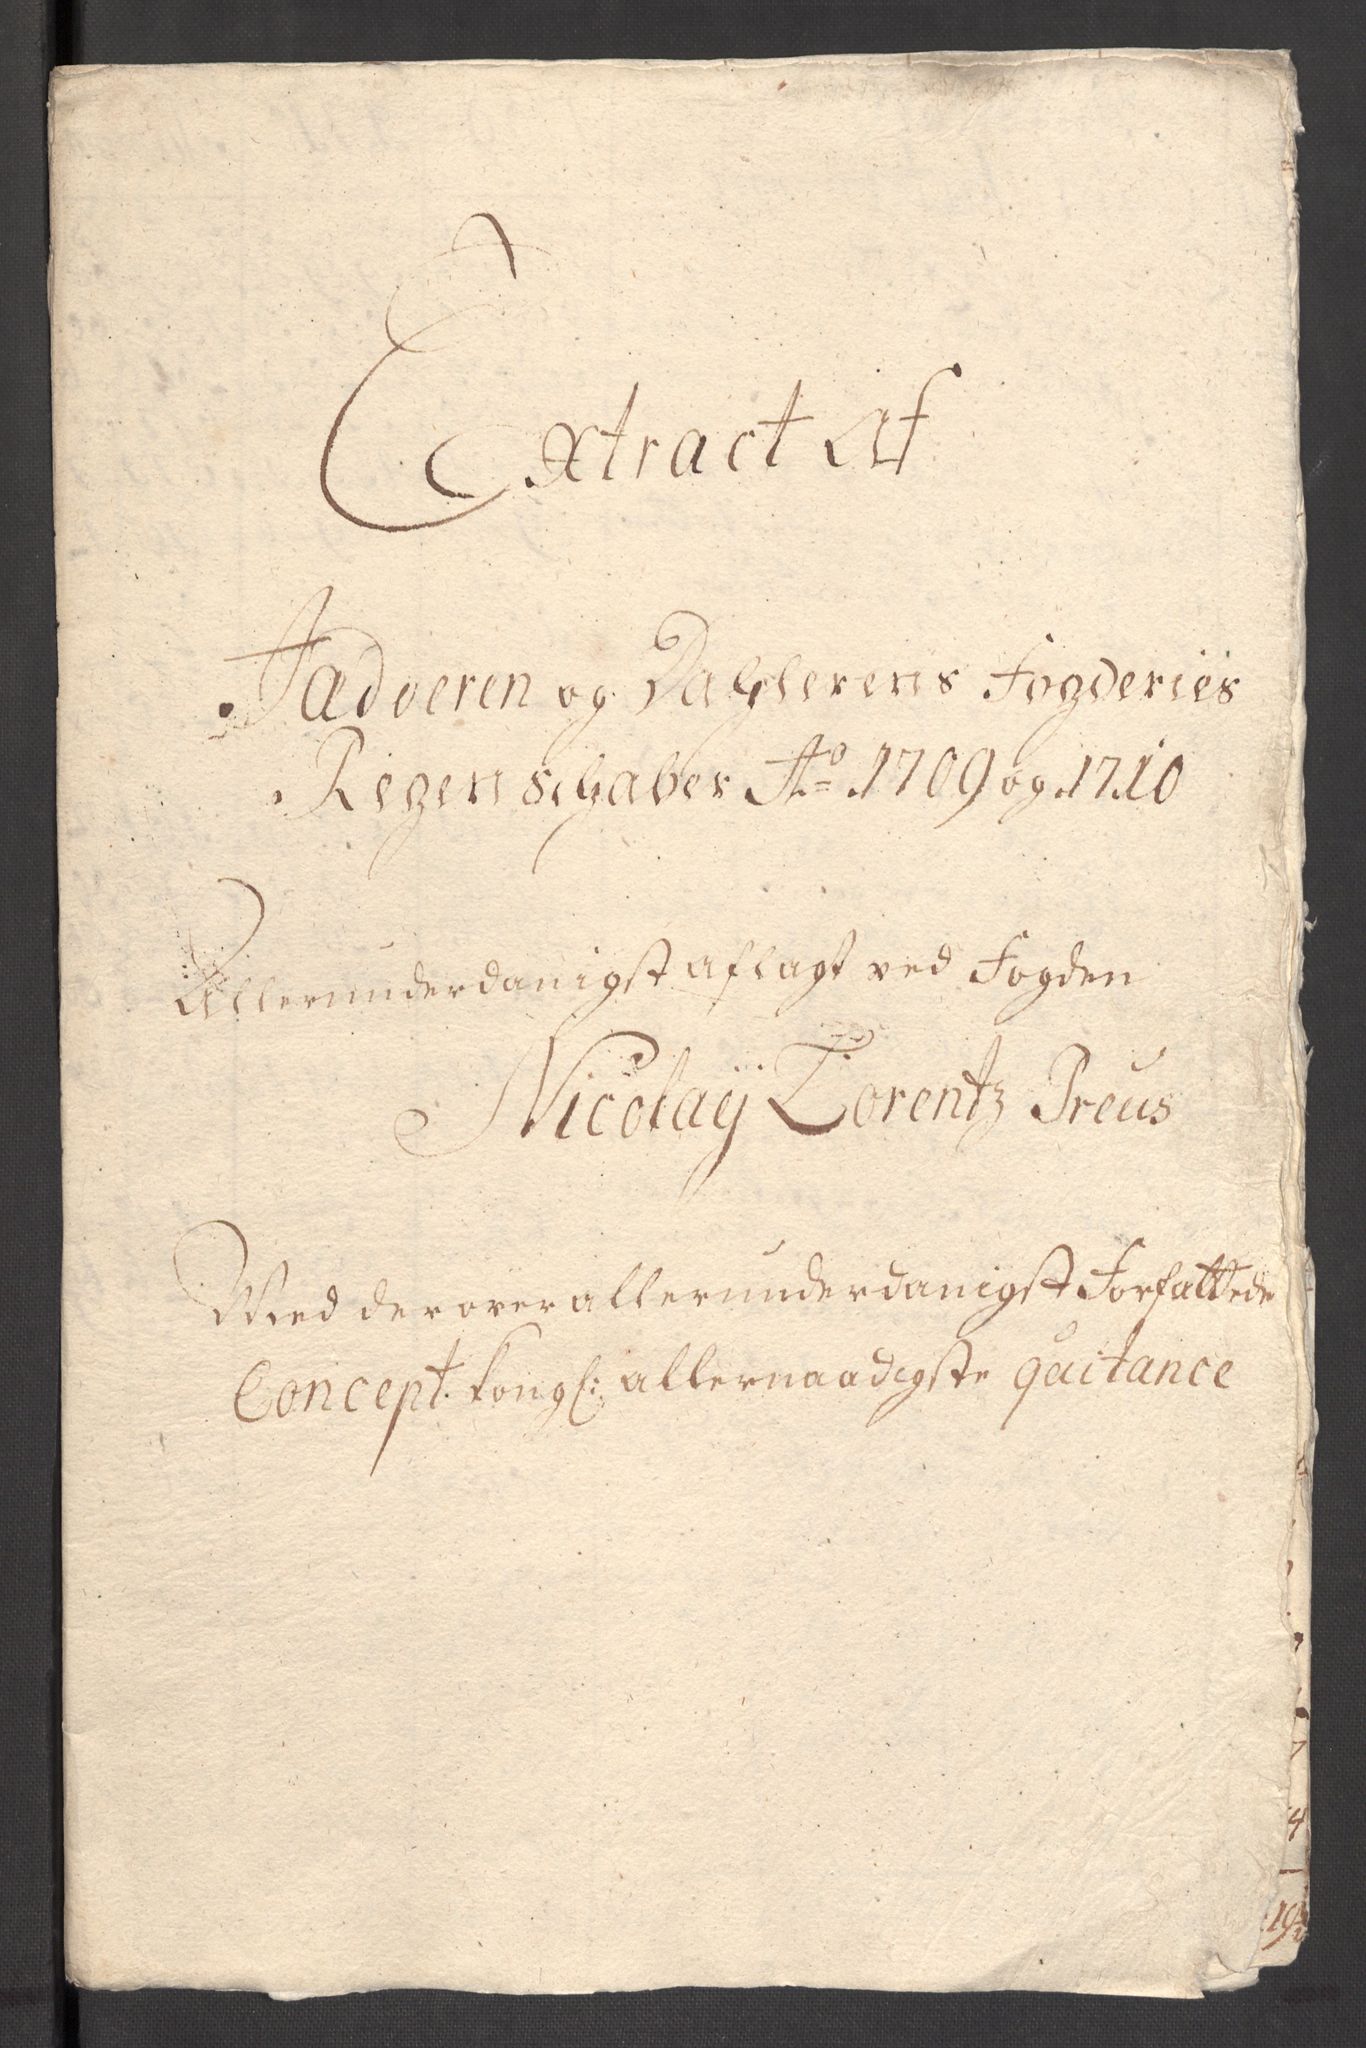 Extract Af
Jadoeren og Dahlerens Fogderies
Regenschaber Ao. 1709 og 1710
Allerunderdanigst aflagt ved Fogden
Nicolaÿ Lorentz Preus
Med derover allerunderdanigst Forfattede
Concept. kongl: allernaadigste quitance
7
4
19½